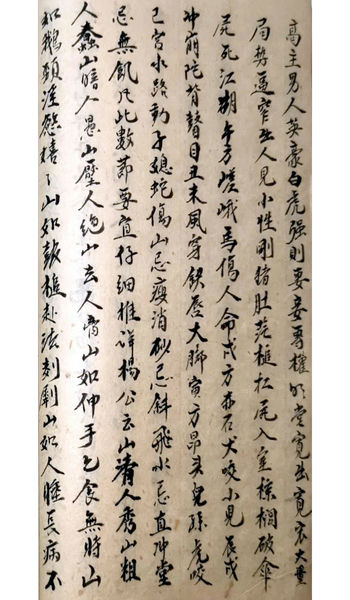 高主男人英豪白虎強則妻妾專權明堂寬出寬宏大量
局勢逼窄出人見小性剛豬肚茫槌扛屍入室棕櫚破傘
屍死江湖午方嵯峨馬傷人命戌方赤石犬咬小兒辰戌
冲崩陀背聾目丑未風穿缺唇大腳寅方昂頭兒孫虎咬
已宮水路動子媳蛇傷山忌瘦消砂忌斜飛水忌直冲堂
忌無氣凡此數節要宜仔細推詳楊公云山清人秀山粗
人蠢山暗人愚山壁人絕山去人 山如伸手乞食無時山
如鵝頸淫慾嬉々山如鼓槌赴法刻劊山如人睡長病不